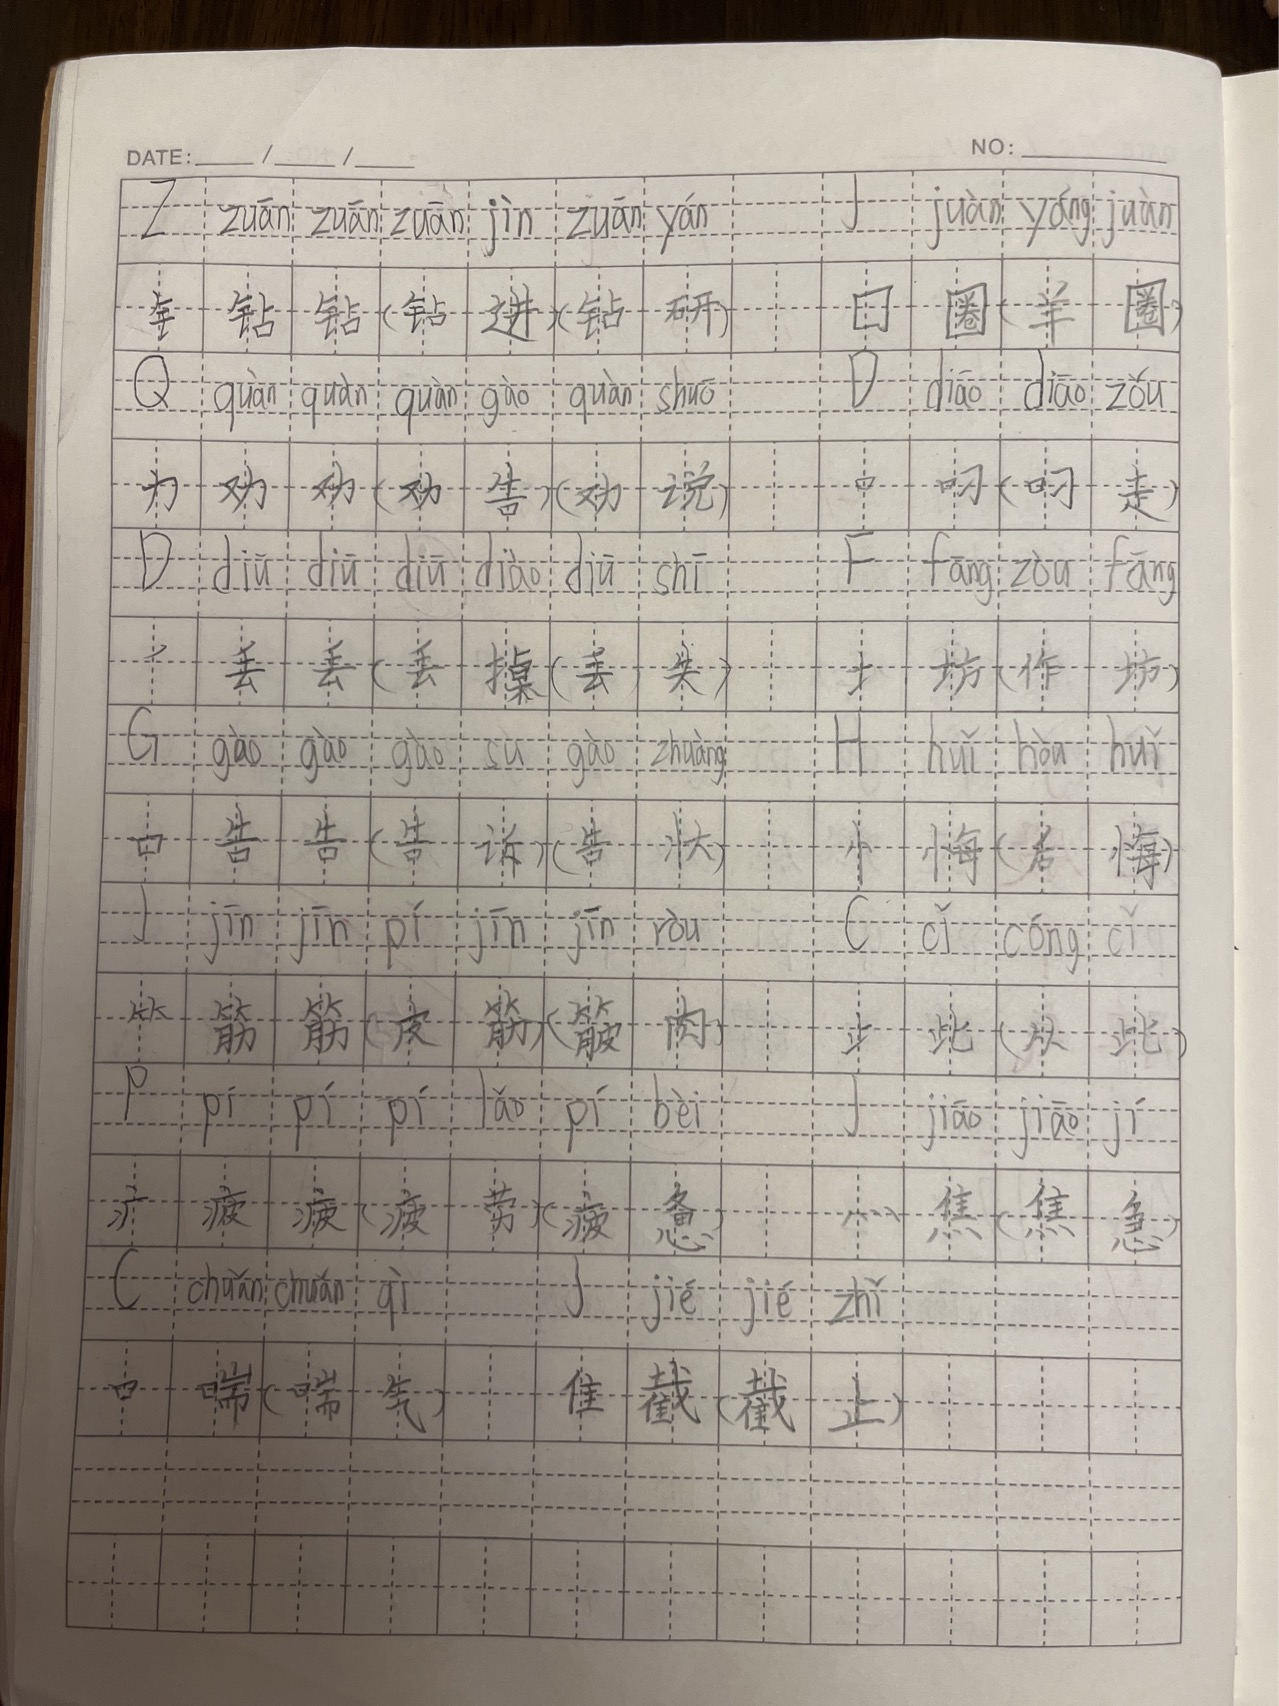 DATE: / / NO:
Z zuān zuān zuān jìn zuān yán J juàn yáng juàn
钅 钻 钻 (钻 进)(钻 研) 囗 圈 (羊 圈)
Q quàn quàn quàn gào quàn shuō D diāo diāo zǒu
力 劝 劝 (劝 告)(劝 说) 口 叼 (叼 走)
D diū diū diū diào diū shī F fāng zòu fāng
丿 丢 丢 (丢 掉)(丢 失) 土 坊 (作 坊)
G gào gào gào sù gào zhuàng H huǐ hòu huǐ
口 告 告 (告 诉)(告 状) 忄 悔 (后 悔)
J jīn jīn pí jīn jīn ròu C cǐ cóng cǐ
⺮ 筋 筋 (皮 筋)( 肉) 止 此 (从 此)
P pí pí pí láo pí bèi J jiāo jiāo jí
疒 疲 疲 (疲 劳)(疲 惫) 灬 焦 (焦 急)
C chuǎn chuǎn qì J jié jié zhǐ
口 喘 (喘 气) 隹 截 (截 止)